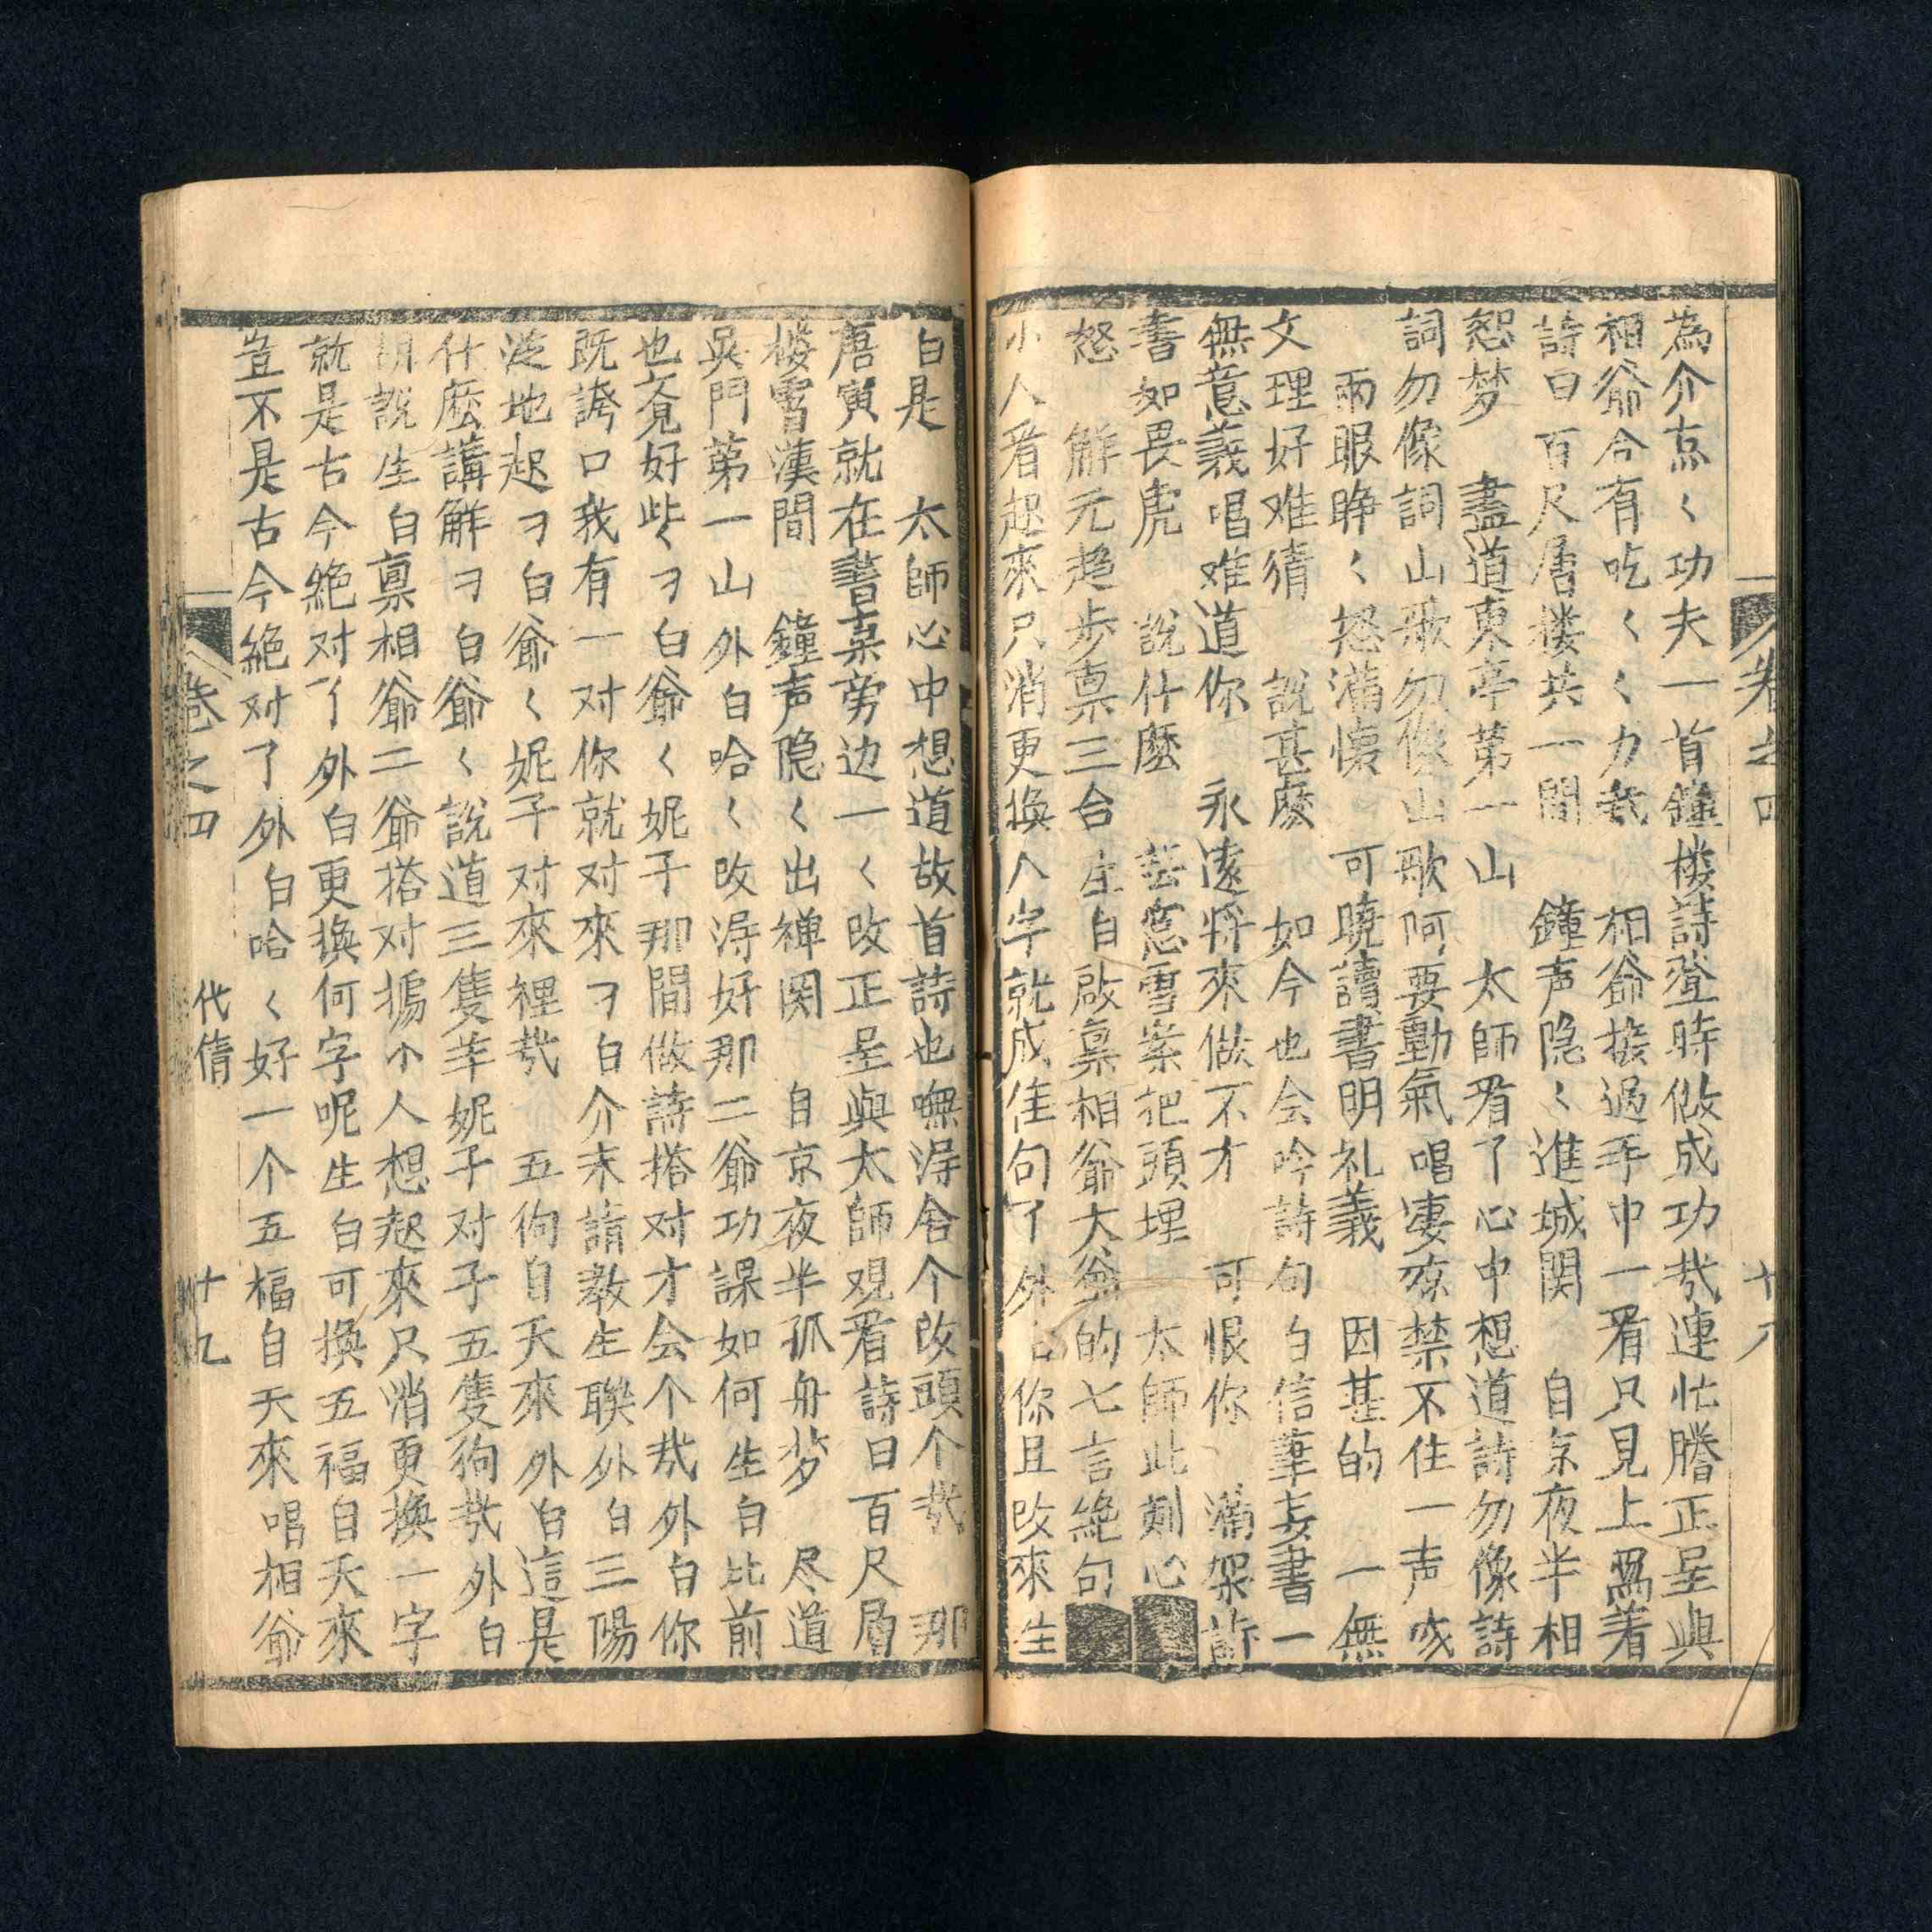 為介点〻功夫一首鐘楼詩登時做成功哉連忙謄正呈與
相爺合有吃〻〻力哉 相爺接過手中一看只見上寫著
詩曰百尺層楼共一間 鐘声隐〻進城関 自京夜半相
恕梦 盡道東亭第一山 太師看了心中想道詩勿像詩
詞勿像詞山歌勿像山歌阿要動氣唱 禁不住一声
兩眼睁〻怒滿懷 可曉讀書明礼義 因甚的 一無
文理好难猜 說甚麽 如今也会吟詩句自信 妄書一
無意義唱难道你 永遠将來做不才 可恨你 滿架詩
書如畏虎 說什麽 芸窓雪案把頭埋 太師此刻心
怒 解元趋步禀三台 生白啟禀相爺大爺的七言絶句
小人看起來只消更換八字就成佳句了外白你且改來生
卷之四 十八
白是 太師心中想道故首詩也嘸淂舍个改頭个哉 那
唐寅就在書桌旁边一〻改正呈與太師观看詩曰百尺層
楼霄漢間 鐘声隐〻出禅関 自京夜半孤舟梦 尽道
吳門第一山外白哈〻改淂好那二爺功課如何生白比前
也覚好些〻ヲ白爺〻妮子那間做詩搭对才会个哉外白你
既誇口我有一对你就对來ヲ白介末請教生聯外白三陽
泛地起ヲ白爺〻妮子对來裡哉 五徇自天來外白這是
什麽講解ヲ白爺〻說道三隻羊妮子对子五隻狗哉外白
胡說生白禀相爺二爺搭对搗个人想起來只消更換一字
就是古今絶对了外白更換何字呢生白可換五福自天來
豈不是古今絶对了外白哈〻好一个五福自天來唱相爺
卷之四 代倩 十九